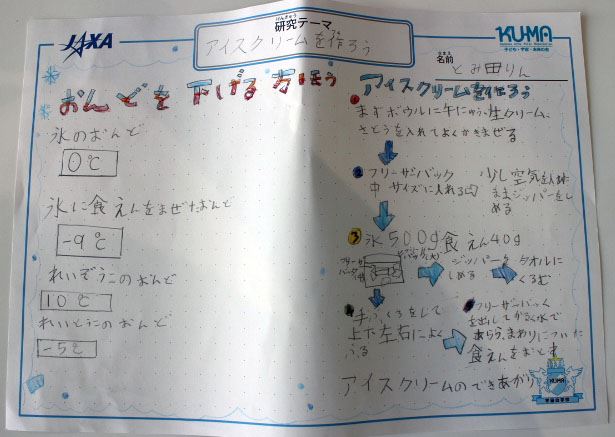 JAXA
けんきゅう
研究テーマ
アイスクリームを作ろう
KUMA
子ども・宇宙・未来の会
なまえ
名前
とみ田りん
おんどを下げる方ほう
氷のおんど
0℃
氷に食えんをまぜたおんど
-9℃
れいぞうこのおんど
10℃
れいとうこのおんど
-5℃
アイスクリームを作ろう
まずボウルに牛にゅう、生クリーム、
さとうを入れてよくかきまぜる
2 フリーザーバック
中サイズに入れる
少し空気を入れた
ままジッパーをし
める
3 氷500g食えん40g
フリーザー
バック
ジッパーを
しめる
タオルに
くるむ
手ぶくろをして
上下左右によく
ふる
フリーザーバック
を出してかるく水で
あらう、まわりについた
食えんをおとす
アイスクリームのできあがり
KUMA
宇宙の学校